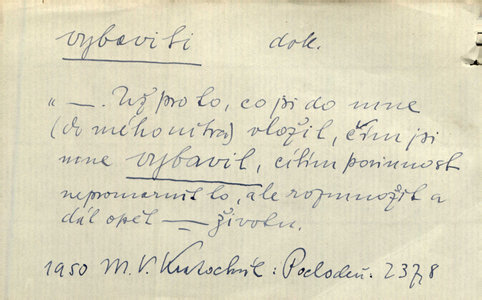 vybaviti dok.
„ —. Už proto, co jsi do mne
(do mého nitra) vložil, čím jsi
mne vybavil, cítím povinnost
nepromarnit to, ale rozmnožit a
dát opět — životu.
1950 M. V. Kratochvíl: Pochodeň. 237,8